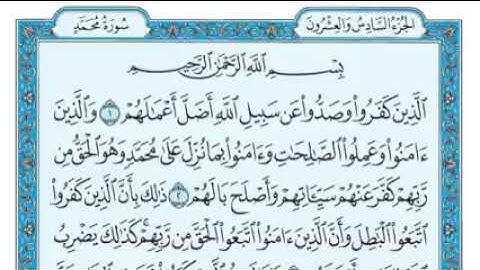 سُورَةُ مُحَمَّدٍ
الجُزْءُ السَّادِسُ وَالعِشْرُونَ
بِسْمِ اللَّهِ الرَّحْمَٰنِ الرَّحِيمِ
الَّذِينَ كَفَرُوا وَصَدُّوا عَن سَبِيلِ اللَّهِ أَضَلَّ أَعْمَٰلَهُمْ ١ وَالَّذِينَ
ءَامَنُوا وَعَمِلُوا الصَّٰلِحَٰتِ وَءَامَنُوا بِمَا نُزِّلَ عَلَىٰ مُحَمَّدٍ وَهُوَ الْحَقُّ مِن
رَّبِّهِمْ كَفَّرَ عَنْهُمْ سَيِّـَٔاتِهِمْ وَأَصْلَحَ بَالَهُمْ ٢ ذَٰلِكَ بِأَنَّ الَّذِينَ كَفَرُوا
اتَّبَعُوا الْبَٰطِلَ وَأَنَّ الَّذِينَ ءَامَنُوا اتَّبَعُوا الْحَقَّ مِن رَّبِّهِمْ كَذَٰلِكَ يَضْرِبُ